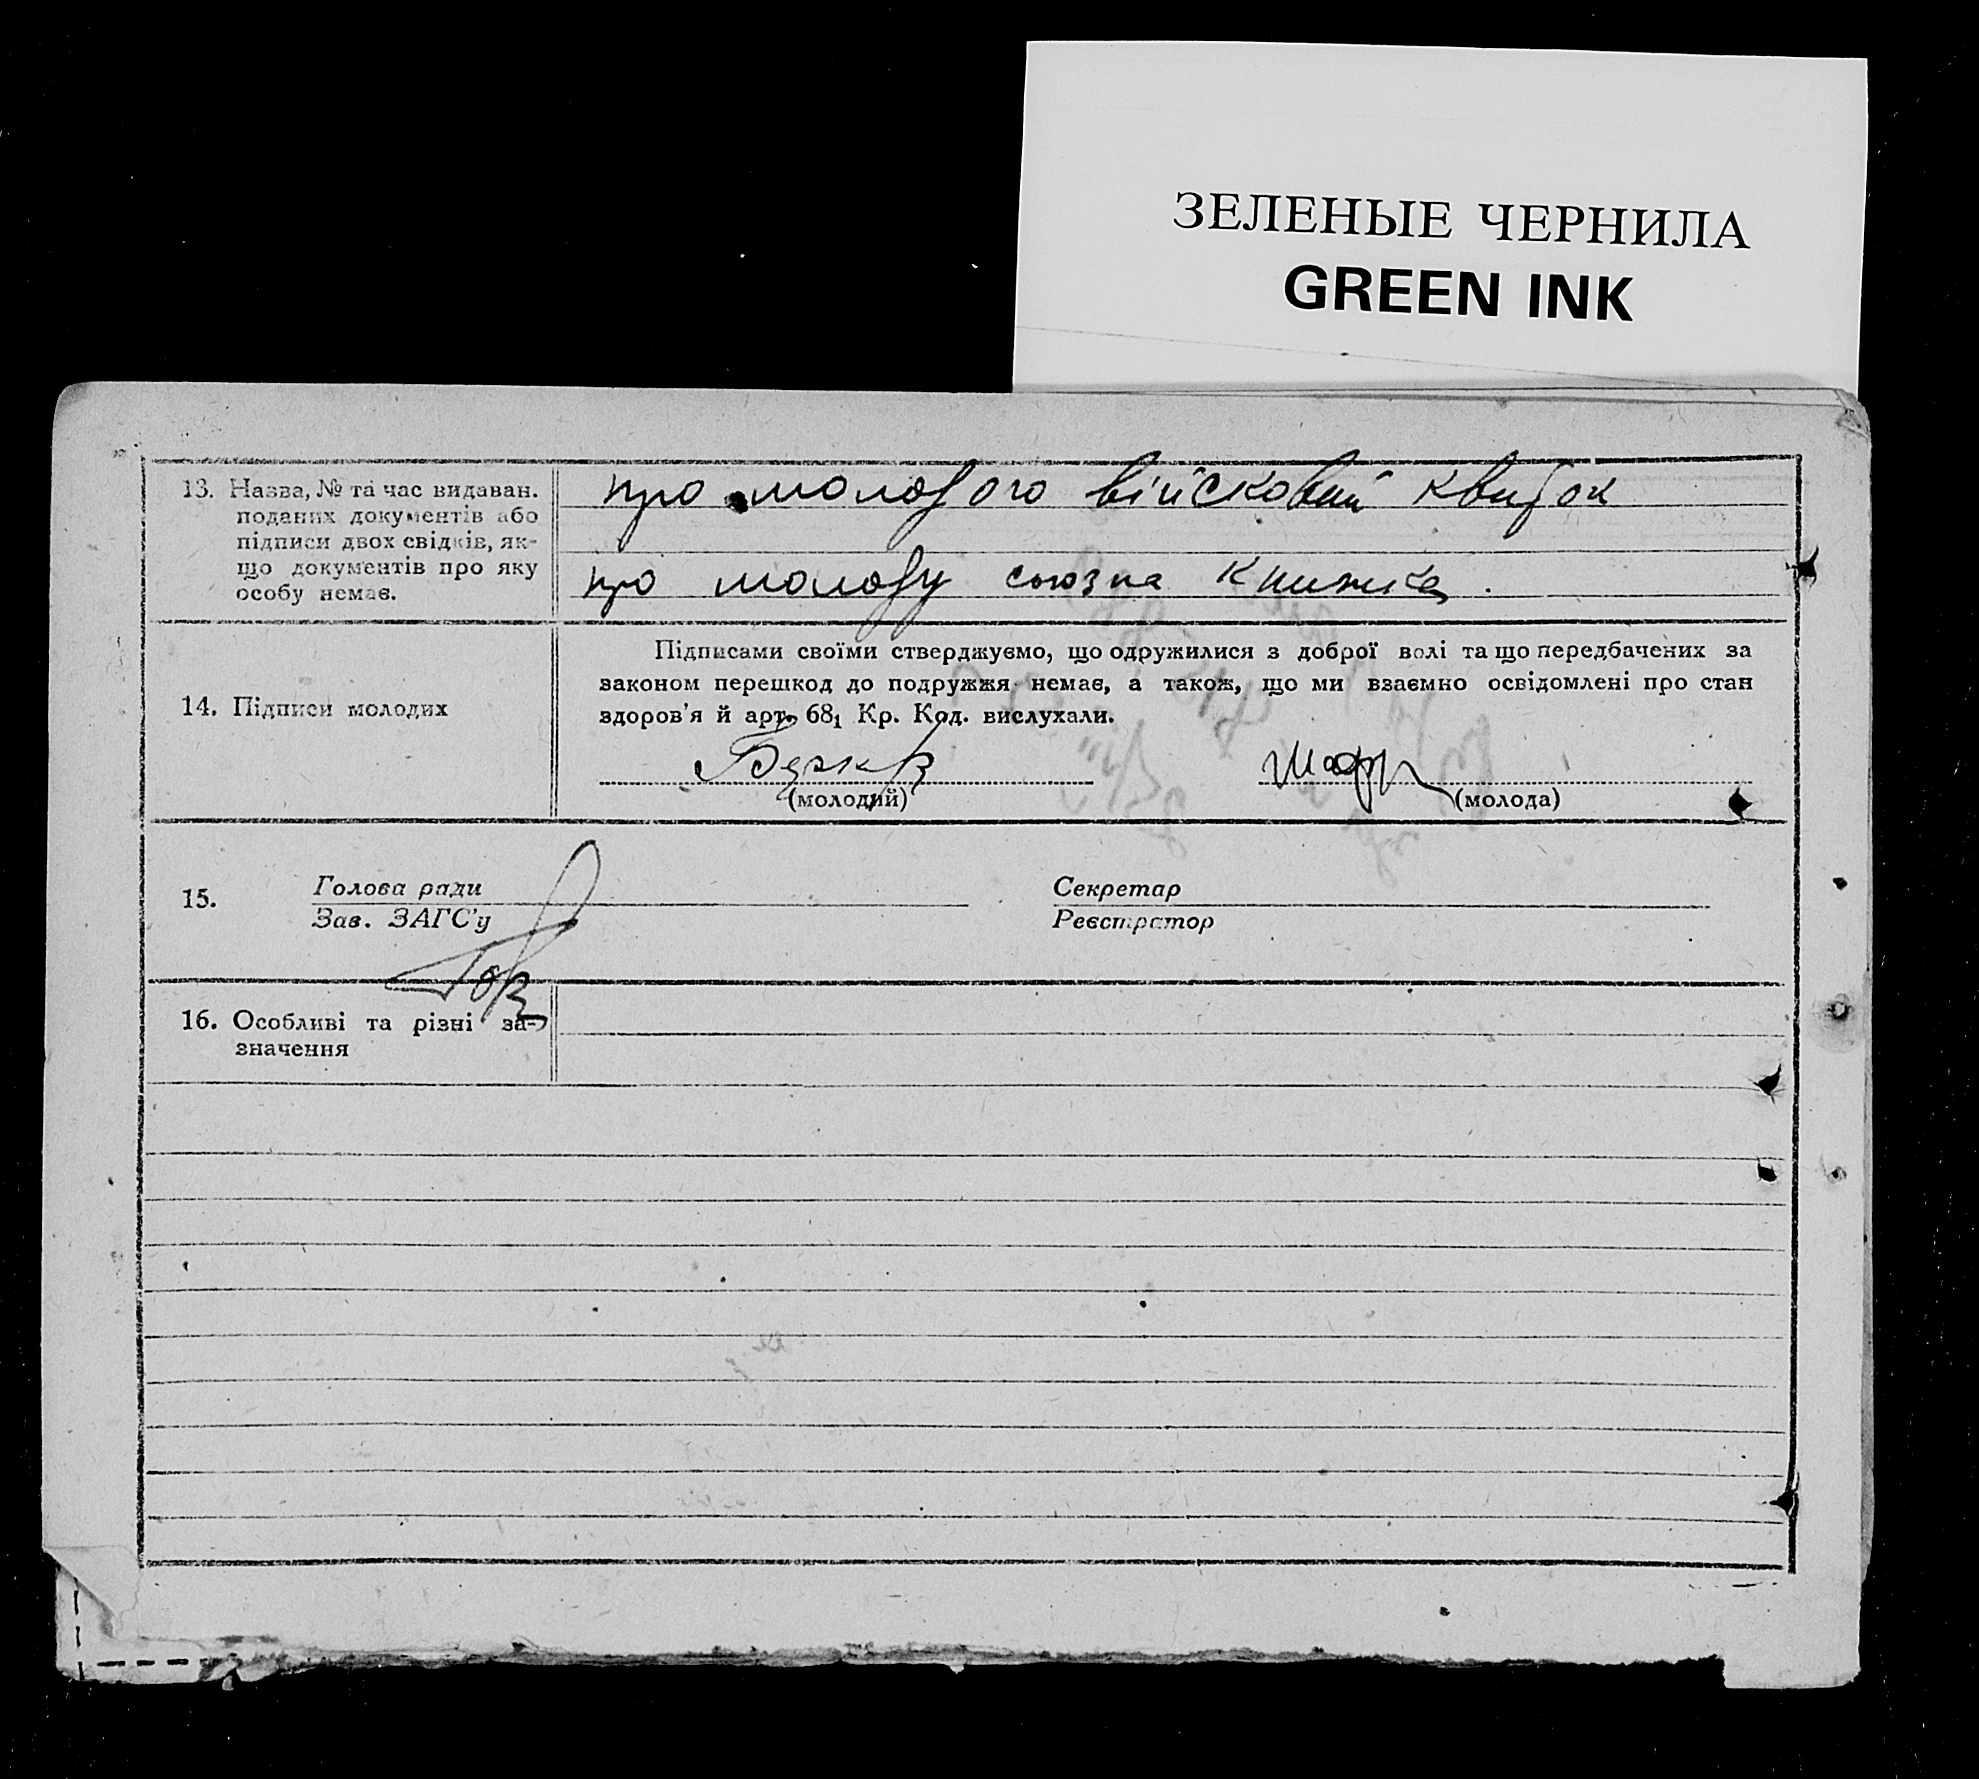 ЗЕЛЕНЫЕ ЧЕРНИЛА
GREEN INK
13. Назва, № та час видаван.
поданих документів або
підписи двох свідків, як-
що документів про яку
особу немає.
про молодого військовий квиток
про молоду союзна книжка.
14. Підписи молодих
Підписами своїми стверджуємо, що одружилися з доброї волі та що передбачених за
законом перешкод до подружжя немає, а також, що ми взаємно освідомлені про стан
здоров'я й арт. 68₁ Кр. Код. вислухали.
(молодий)
(молода)
15.
Голова ради
Зав. ЗАГС'у
Секретар
Реєстратор
16. Особливі та різні за-
значення